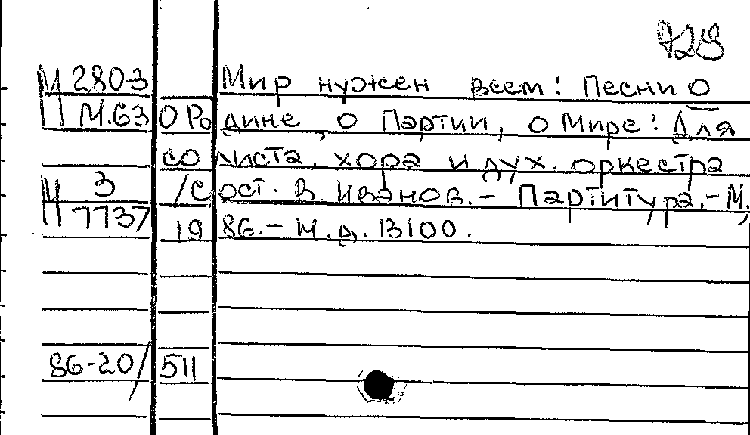 729
М 2803 Мир нужен всем: Песни о
П М.63 О Родине, о Партии, о Мире: Для
солиста, хора и дух. оркестра
М 3 /Сост. В. Иванов. – Партитура. – М.,
П 7737 1986. – Н.д. 13100.
86-20/511